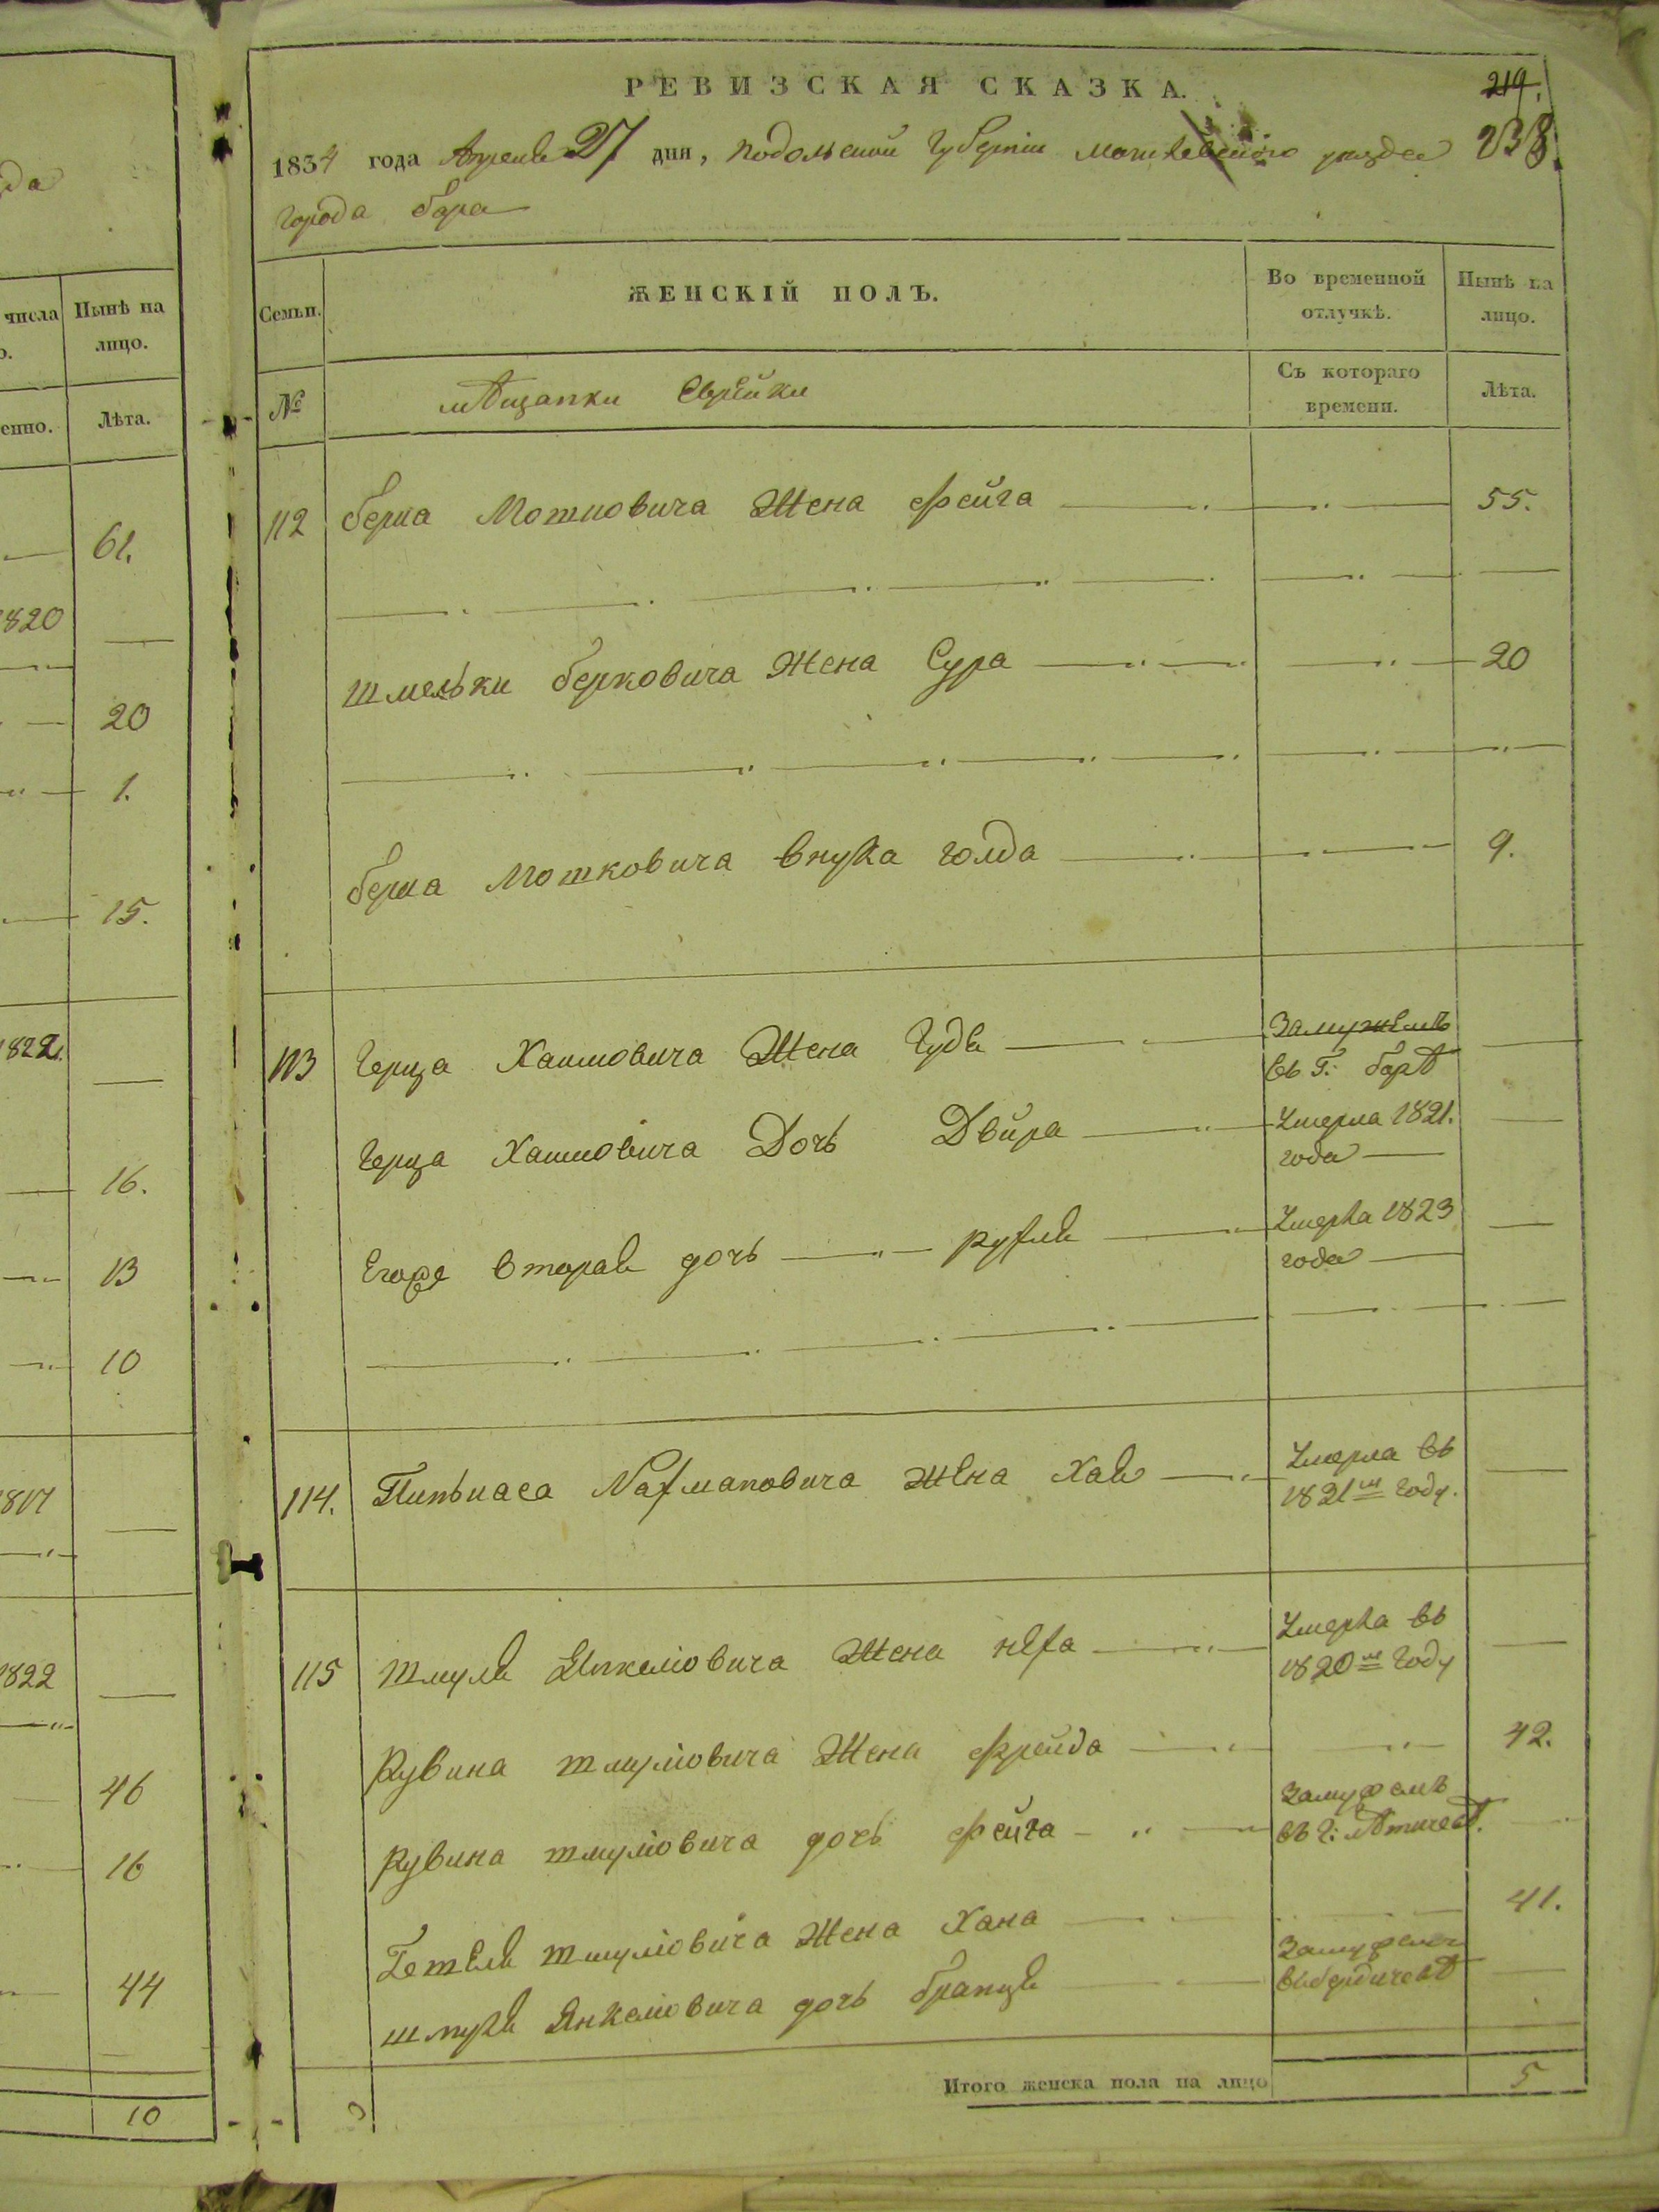 да
числа
о.
Нынѣ на лицо.
енно.
Лѣта.
61.
1820
20
1.
15.
1822.
16.
13
10
1817
1822
46
16
44
10
РЕВИЗСКАЯ СКАЗКА.
219.
1834 года Апреля 27 дня, Подольской Губерніи уезда 238.
города бара
Семьи.
ЖЕНСКІЙ ПОЛЪ.
Во временной отлучкѣ.
Нынѣ на лицо.
№
мѣщанки Еврейки
Съ котораго времени.
Лѣта.
112 берка Мотковича Жена Фейга 55.
Шмельки берковича Жена Сура 20
берка Мотковича внука голда 9.
113 Герца Хаимовича Жена Гудя Замужемъ
въ Г: барѣ
Герца Хаимовича Дочь Двйра Умерла 1821.
года
Егоже вторая дочь рухля Умерла 1823
года
114. Пинькаса Нахмановича жена Хая Умерла въ
1821м году.
115 Шмуля Янкеліовича Жена неха Умерла въ
1820м Году
Рувина шмуліовича Жена фрейда 42.
Замужемъ
Рувина шмуліовича дочь Фейга въ г: лѣтичевѣ.
Гетеля шмуліовича Жена Хана 41.
Замужемъ
шмуля Янкеліовича дочь бранця въ бердичевѣ
Итого женска пола на лицо 5